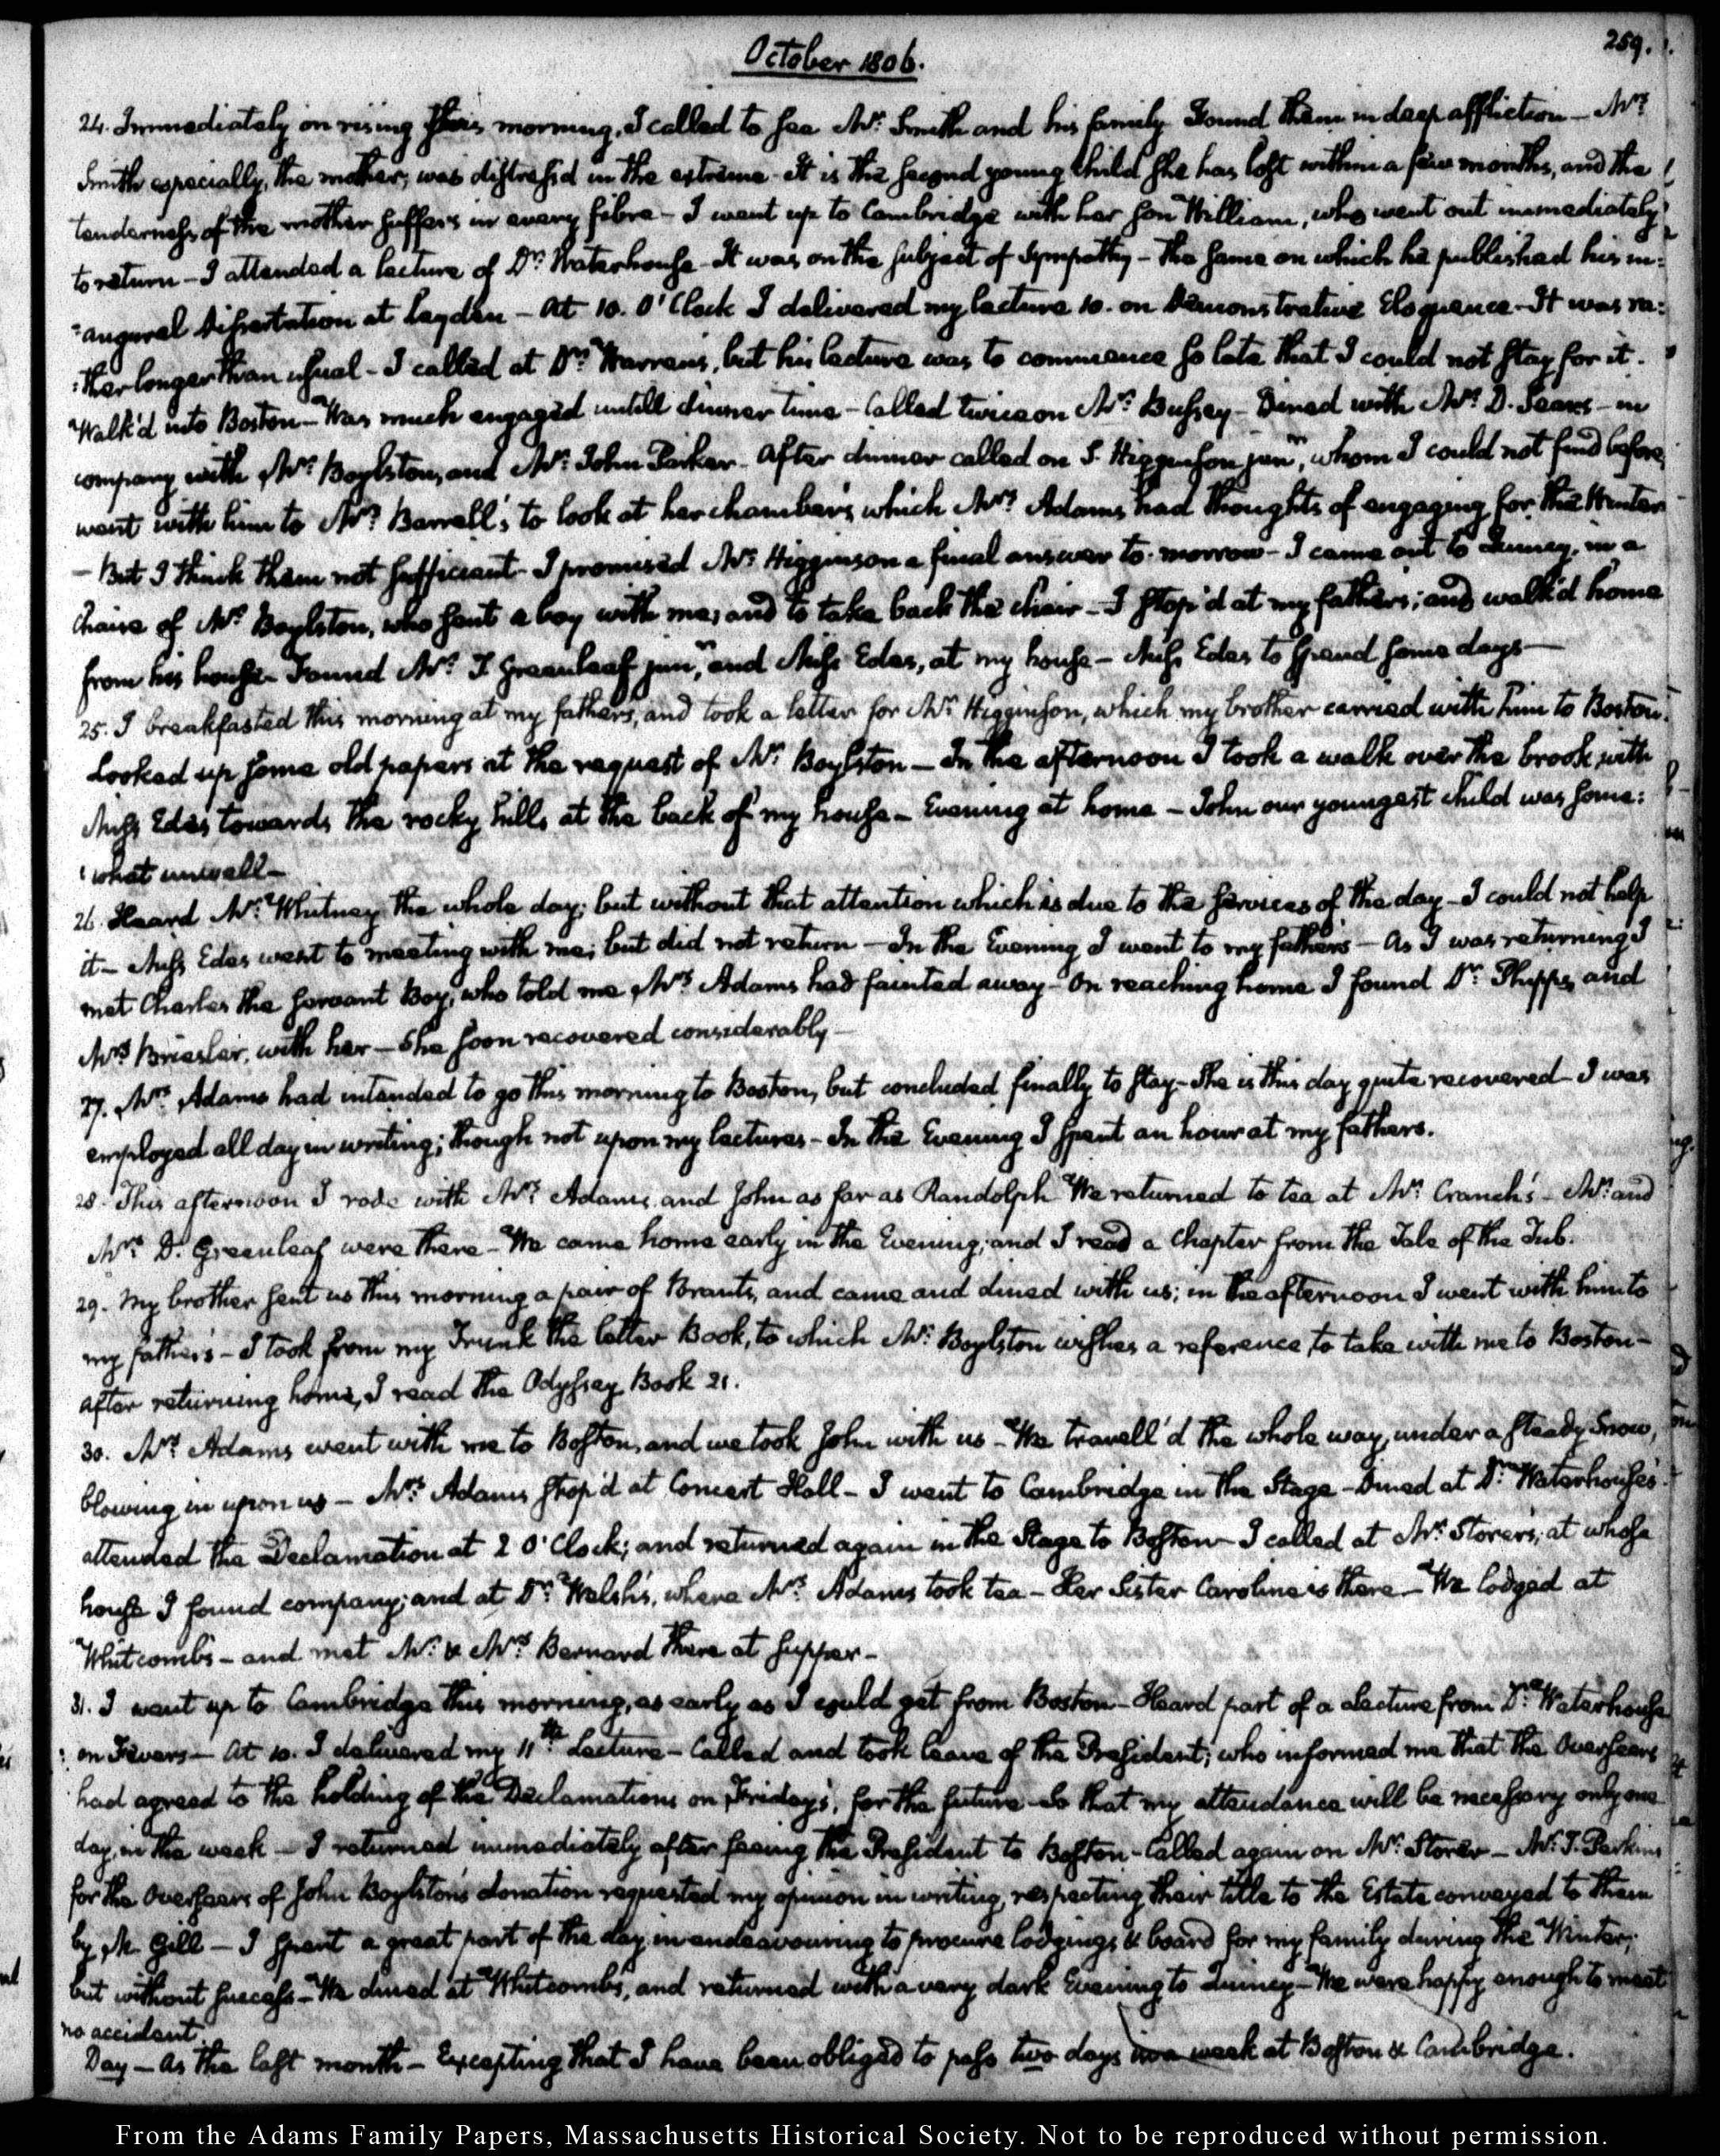 259.
October 1806.
24. Immediately on rising this morning, I called to see Mr: Smith and his family Found them in deep affliction — Mrs
Smith especially, the mother, was distressed in the extreme - It is the second young child she has lost within a few months, and the
tenderness of the mother suffers in every fibre - I went up to Cambridge with her son William, who went out immediately
to return - I attended a lecture of Dr: Waterhouse - It was on the subject of Sympathy - the same on which he published his in:
:augural Dissertation at Leyden - At 10. O'Clock I delivered my lecture 10. on Demonstrative Eloquence - It was ra:
:ther longer than usual - I called at Dr: Warren's, but his lecture was to commence so late that I could not stay for it.
Walk'd into Boston - Was much engaged untill dinner time - Called twice on Mr: Bussey - Dined with Mr: D. Sears - in
company with Mr: Boylston, and Mr: John Parker. After dinner called on S. Higginson junr, whom I could not find before,
went with him to Mrs: Barrell's to look at her chambers which Mrs Adams had thoughts of engaging for the Winter
- But I think them not sufficient - I promised Mr: Higginson a final answer to-morrow - I came out to Quincy, in a
Chaise of Mr: Boylston, who sent a boy with me, and to take back the chair - I stop'd at my father's; and walk'd home
from his house - Found Mr: T. Greenleaf junr, and Miss Edes, at my house - Miss Edes to spend some days —
25. I breakfasted this morning at my father's, and took a letter for Mr: Higginson, which my brother carried with him to Boston.
Looked up some old papers at the request of Mr: Boylston — In the afternoon I took a walk over the brook, with
Miss Edes towards the rocky hills at the back of my house - Evening at home - John our youngest child was some:
:what unwell -
26. Heard Mr: Whitney the whole day; but without that attention which is due to the services of the day - I could not help
it - Miss Edes went to meeting with me; but did not return - In the Evening I went to my father's - As I was returning I
met Charles the servant Boy, who told me Mrs Adams had fainted away - On reaching home I found Dr: Phipps, and
Mrs Briesler, with her - She soon recovered considerably -
27. Mrs Adams had intended to go this morning to Boston, but concluded finally to stay - She is this day quite recovered - I was
employed all day in writing; though not upon my lectures - In the Evening I spent an hour at my father's.
28. This afternoon I rode with Mrs Adams and John as far as Randolph We returned to tea at Mr: Cranch's - Mr: and
Mrs: D. Greenleaf were there - We came home early in the Evening; and I read a Chapter from the Tale of the Tub.
29. My brother sent us this morning a pair of Brants, and came and dined with us; in the afternoon I went with him to
my father's - I took from my Trunk the letter Book, to which Mr: Boylston wishes a reference, to take with me to Boston -
After returning home, I read the Odyssey Book 21.
30. Mrs Adams went with me to Boston, and we took John with us - We travell'd the whole way, under a steady Snow,
blowing in upon us - Mrs Adams stop'd at Concert Hall - I went to Cambridge in the Stage - Dined at Dr: Waterhouse's
attended the Declamation at 2 O'Clock; and returned again in the Stage to Boston - I called at Mr: Storer's, at whose
house I found company; and at Dr: Welsh's, where Mrs Adams took tea - Her Sister Caroline is there - We lodged at
Whitcomb's - and met Mr: & Mrs Bernard there at supper -
31. I went up to Cambridge this morning, as early as I could get from Boston - Heard part of a Lecture from Dr: Waterhouse
on Fevers - At 10. I delivered my 11th Lecture - Called and took leave of the President; who informed me that the Overseers
had agreed to the holding of the Declamations on Friday's, for the future - So that my attendance will be necessary only one
day in the week - I returned immediately after seeing the President to Boston - Called again on Mr: Storer - Mr: T. Perkins
for the Overseers of John Boylston's donation requested my opinion in writing, respecting their title to the Estate conveyed to them
by M. Gill - I spent a great part of the day in endeavouring to procure lodgings & board for my family during the Winter;
but without success - We dined at Whitcomb's, and returned with a very dark Evening to Quincy - We were happy enough to meet
no accident.
Day - As the last month - Excepting that I have been obliged to pass two days in a week at Boston & Cambridge.
From the Adams Family Papers, Massachusetts Historical Society. Not to be reproduced without permission.